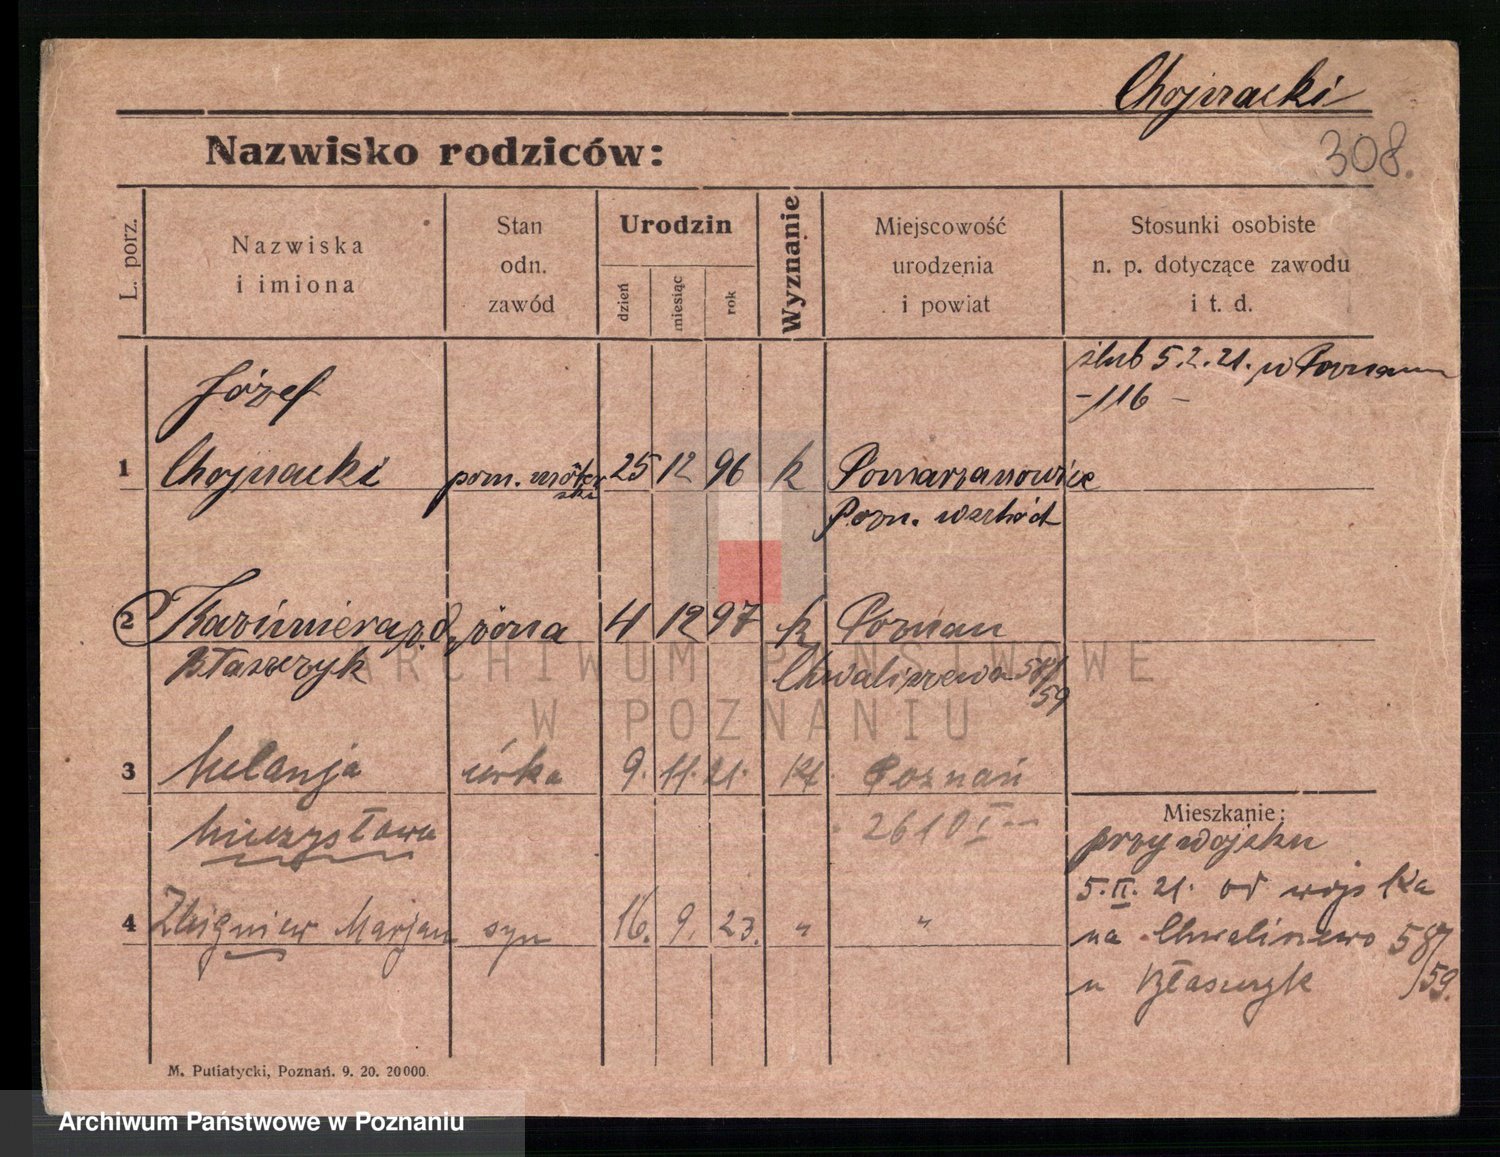 Chojnacki
308.
Nazwisko rodziców:
L. porz.
Nazwiska
i imiona
Stan
odn.
zawód
Urodzin
dzień
miesiąc
rok
Wyznanie
Miejscowość
urodzenia
i powiat
Stosunki osobiste
n. p. dotyczące zawodu
i t. d.
ślub 5.2.21. w Poznaniu
-116-
Józef
1 Chojnacki pom. 25 12 96 k Pomarzanowice
Pozn. wschód
2 Kazimiera z d. żona 4 12 97 k Poznań
Błaszczyk Chwaliszewo 58/59
ARCHIWUM PAŃSTWOWE
W POZNANIU
3 Melanja córka 9. 11. 21. kt. Poznań
Mieczysława 2610 I
Mieszkanie:
przy wojsku
5.II.21. od wojska
4 Zbigniew Marjan syn 16. 9. 23. " "
na Chwaliszewo 58/59.
u Błaszczyk
M. Putiatycki, Poznań. 9. 20. 20000.
Archiwum Państwowe w Poznaniu